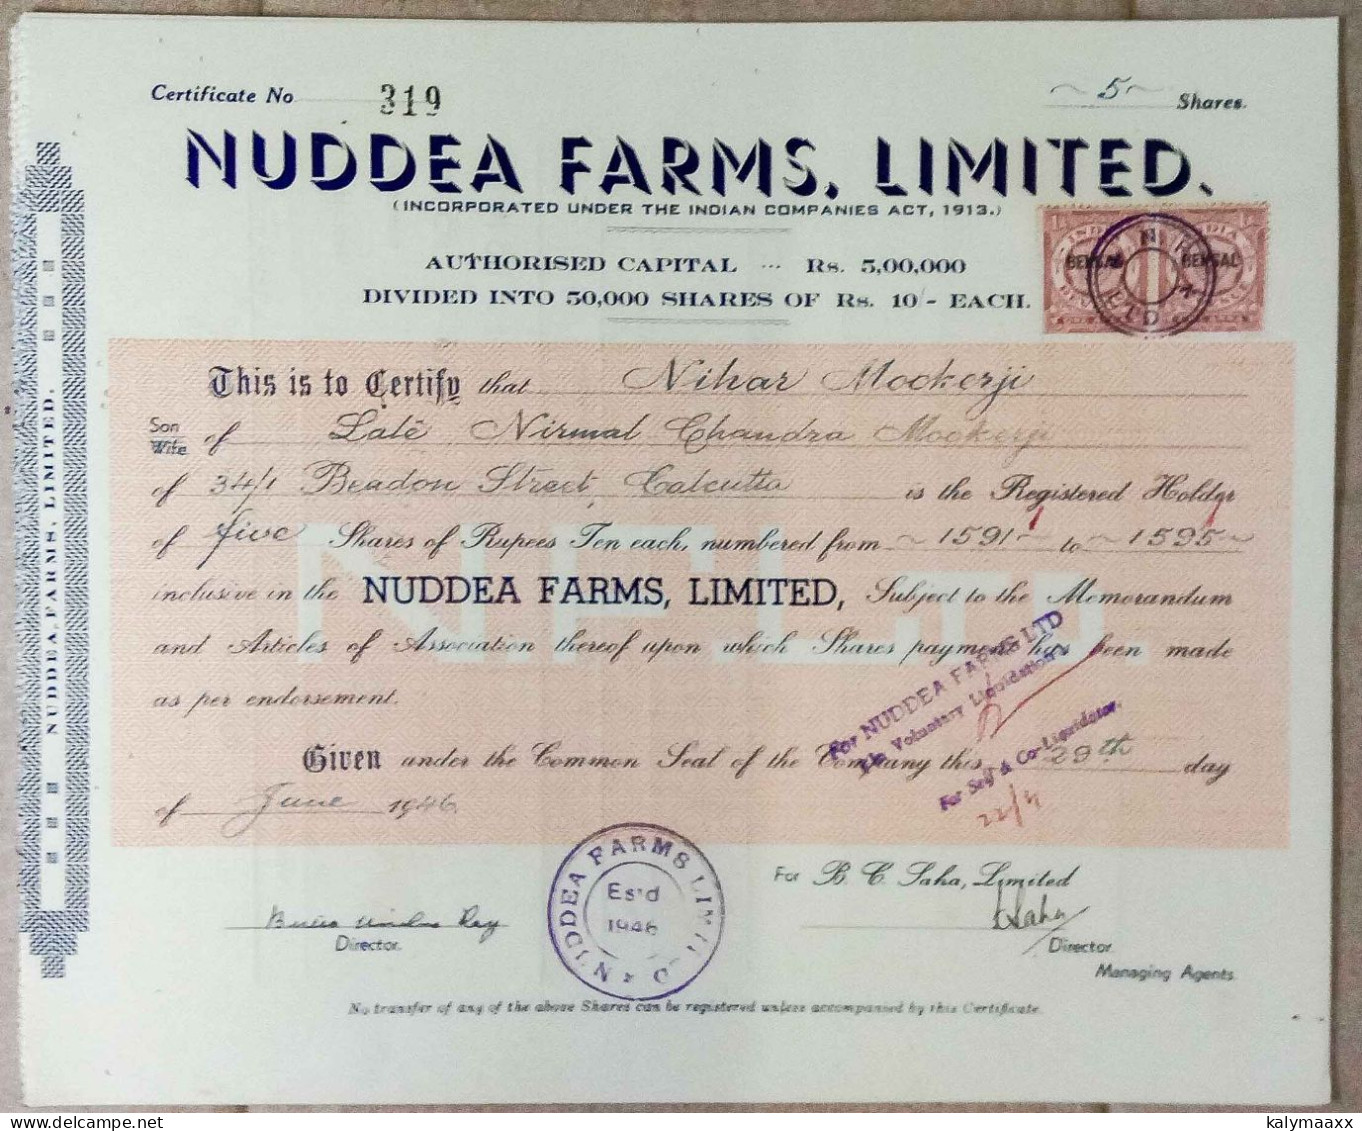 Certificate No 319
~ 5 ~ Shares.
NUDDEA FARMS, LIMITED.
(INCORPORATED UNDER THE INDIAN COMPANIES ACT, 1913.)
AUTHORISED CAPITAL ... Rs. 5,00,000
DIVIDED INTO 50,000 SHARES OF Rs. 10/- EACH.
INDIA
BENGAL BENGAL
REVENUE
This is to Certify that Nihar Mookerji
Son
Wife of Late Nirmal Chandra Mookerji
of 34/1 Beadon Street, Calcutta is the Registered Holder
of five Shares of Rupees Ten each, numbered from ~ 1591 ~ to ~ 1595 ~
inclusive in the NUDDEA FARMS, LIMITED, Subject to the Memorandum
and Articles of Association thereof upon which Shares payment has been made
as per endorsement.
For NUDDEA FARMS LTD
In Voluntary Liquidation
For Self & Co-Liquidator.
22/4
Given under the Common Seal of the Company this 29th day
of June 1946
NUDDEA FARMS LIMITED
Est'd
1946
For B. C. Saha, Limited
Saha
Director.
Director
Managing Agents.
No transfer of any of the above Shares can be registered unless accompanied by this Certificate.
NUDDEA, FARMS, LIMITED.
N.F. LTD.
kalymaaxx